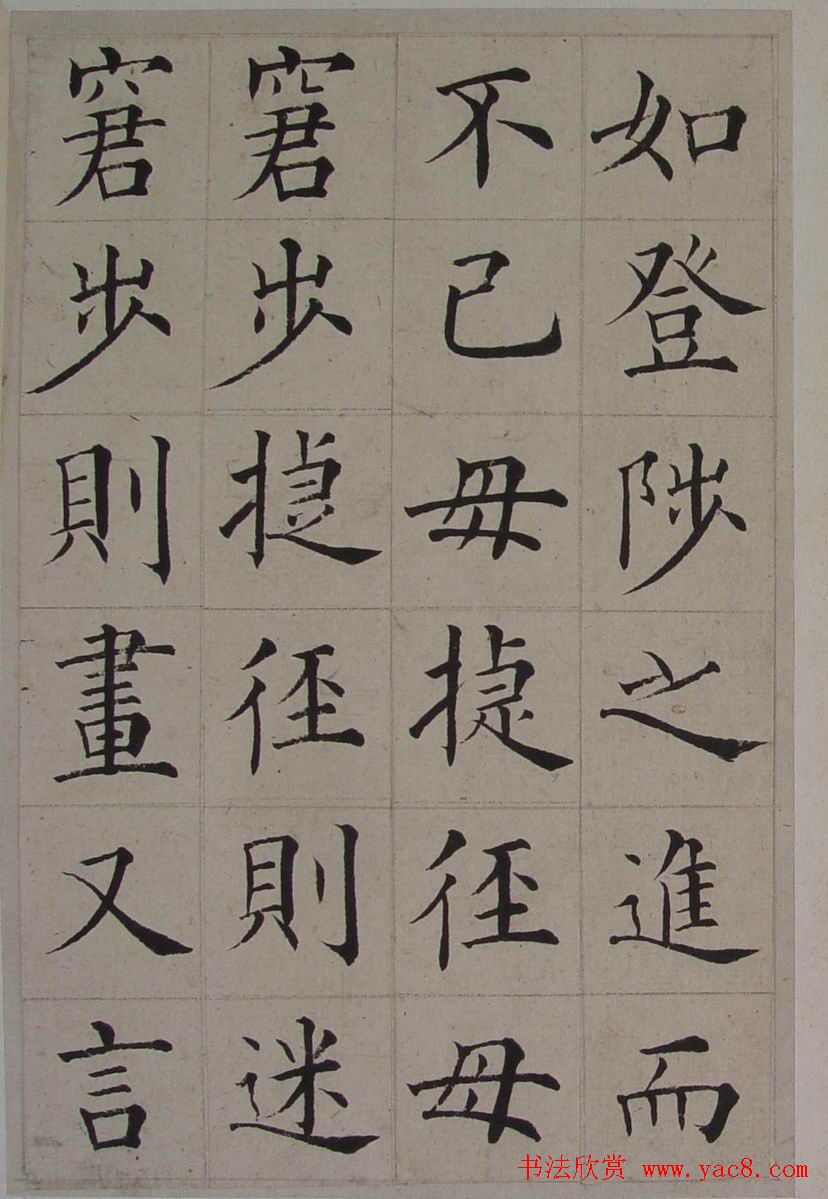 如登陟之進而
不已毋捷徑毋
窘步捷徑則迷
窘步則畫又言
书法欣赏 www.yac8.com